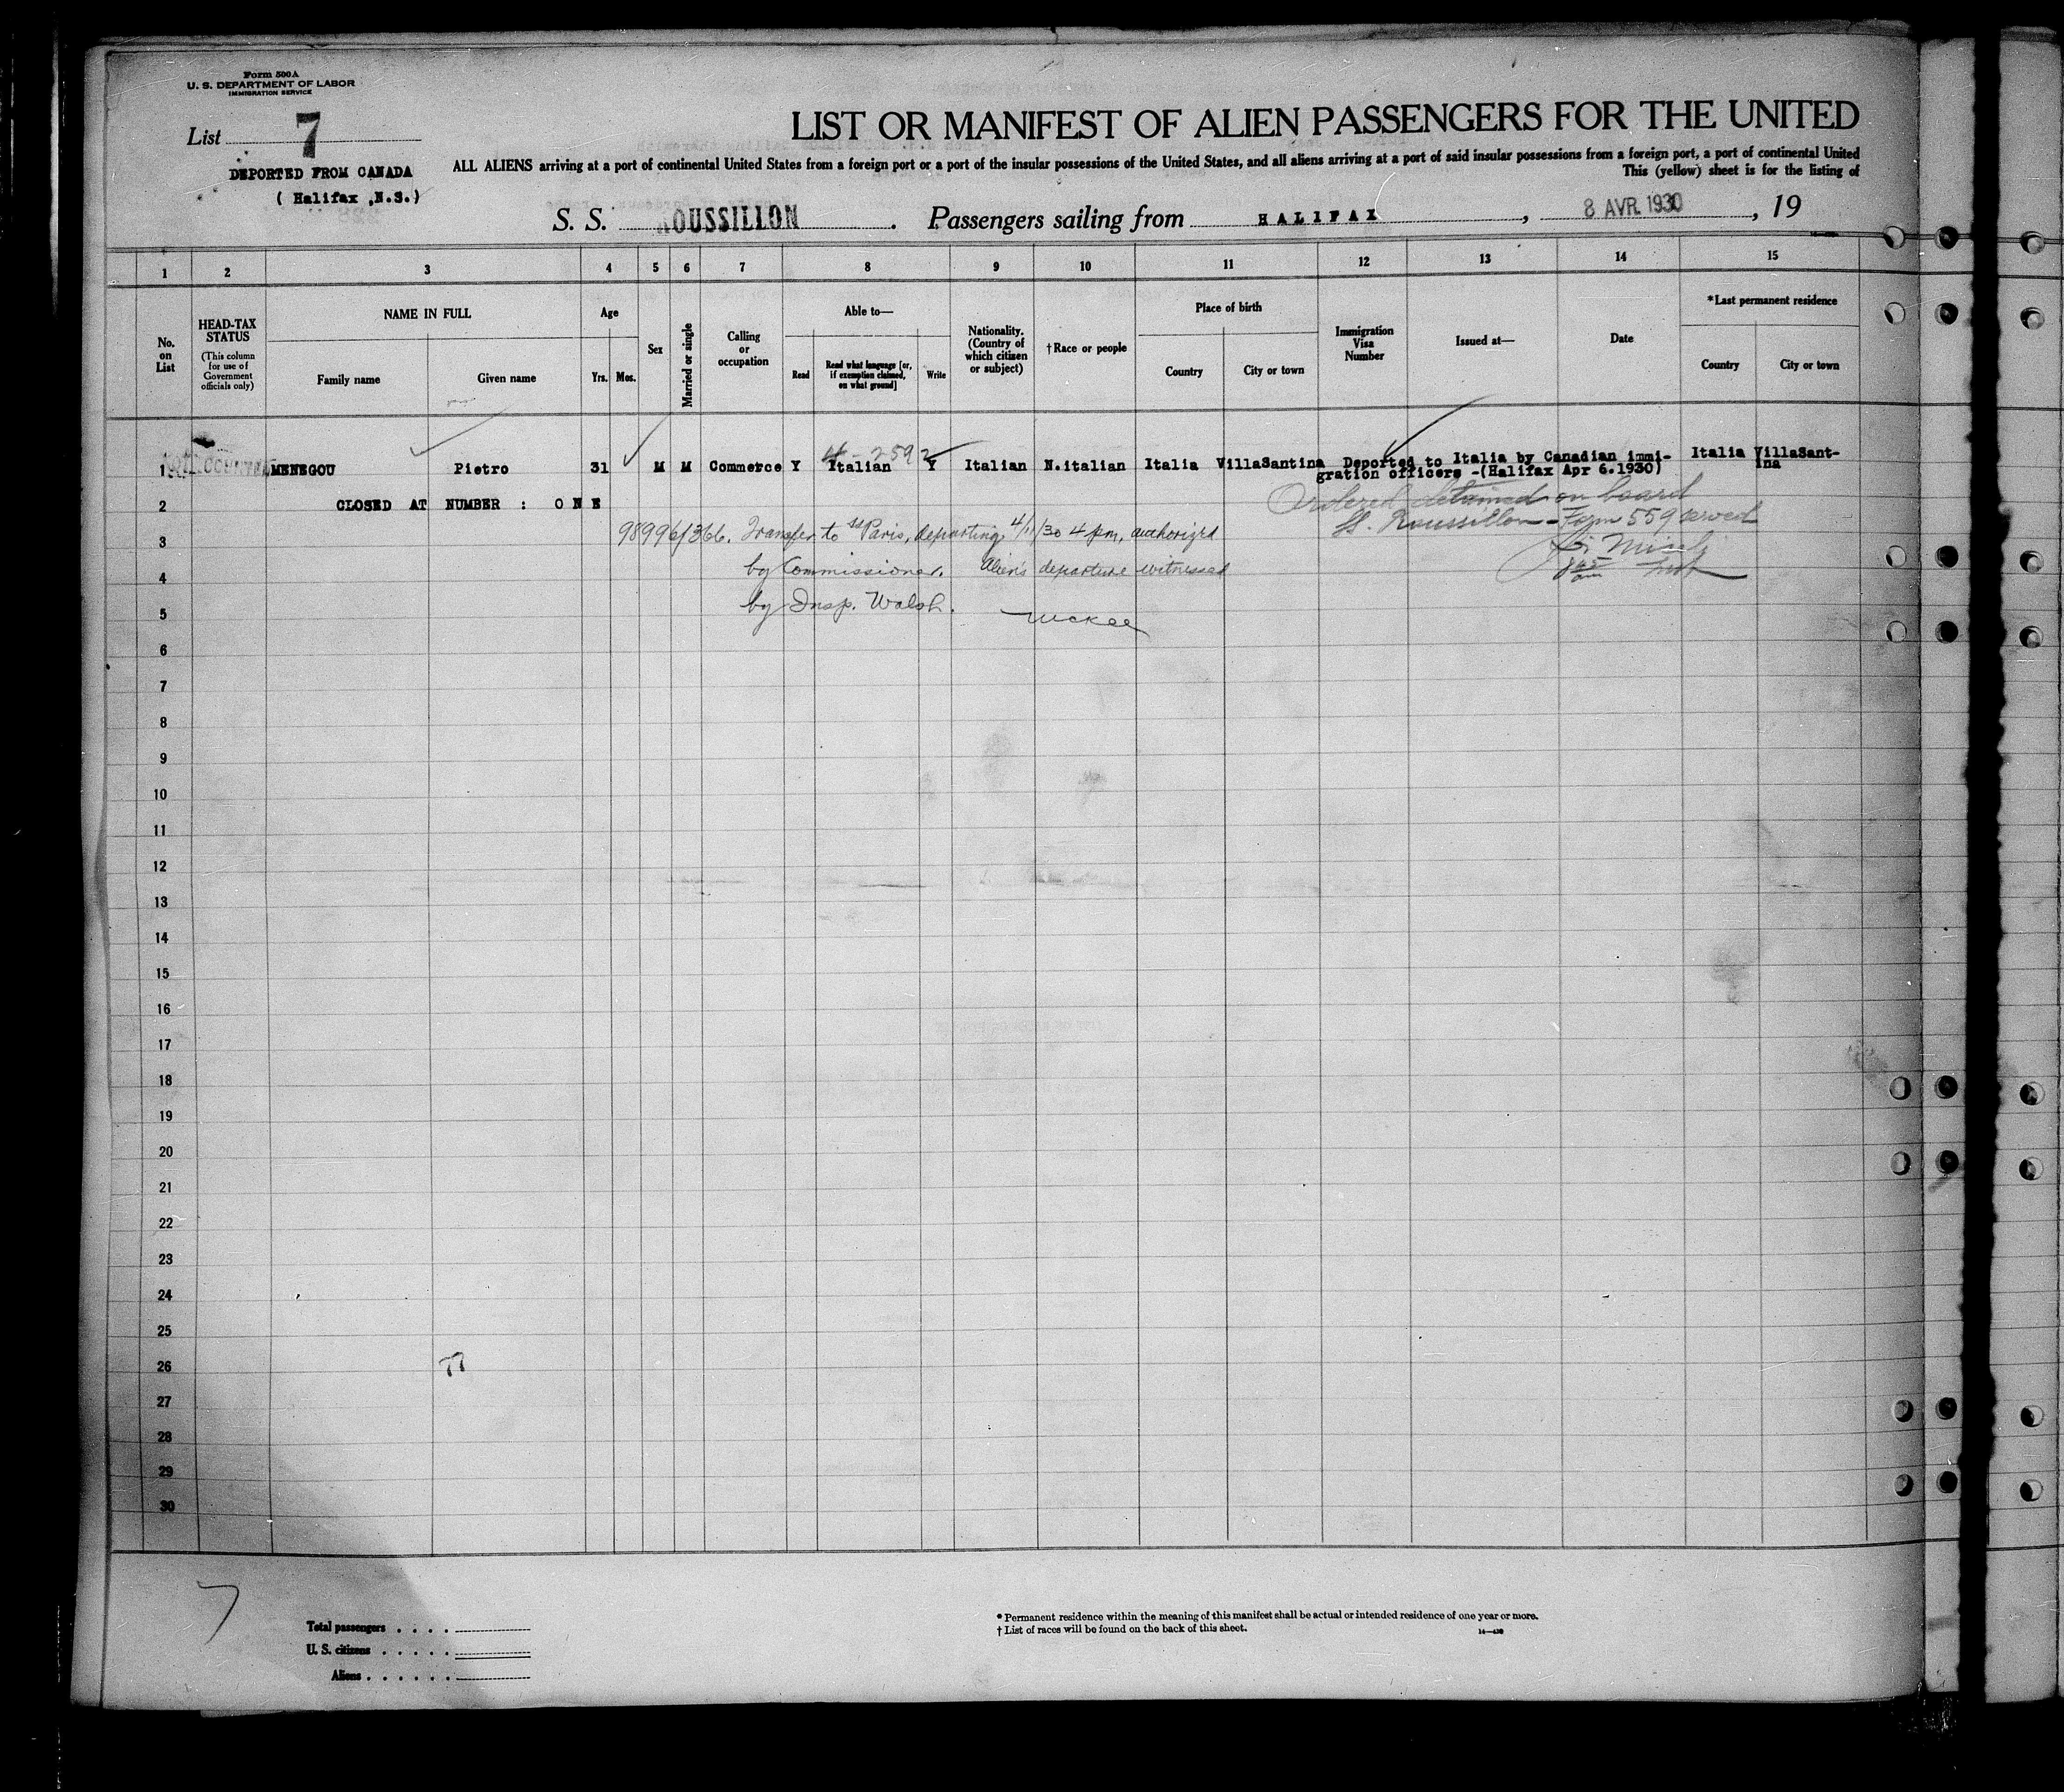 Form 500A
U. S. DEPARTMENT OF LABOR
IMMIGRATION SERVICE
List 7
DEPORTED FROM CANADA
( Halifax ,N.S.)
LIST OR MANIFEST OF ALIEN PASSENGERS FOR THE UNITED
ALL ALIENS arriving at a port of continental United States from a foreign port or a port of the insular possessions of the United States, and all aliens arriving at a port of said insular possessions from a foreign port, a port of continental United
This (yellow) sheet is for the listing of
S. S. ROUSSILLON. Passengers sailing from HALIFAX, 8 AVR. 1930, 19
1 2 3 4 5 6 7 8 9 10 11 12 13 14 15
No. on List
HEAD-TAX STATUS
(This column for use of Government officials only)
NAME IN FULL
Family name
Given name
Age
Yrs. Mos.
Sex
Married or single
Calling or occupation
Able to—
Read
Read what language [or, if exemption claimed, on what ground]
Write
Nationality. (Country of which citizen or subject)
†Race or people
Place of birth
Country
City or town
Immigration Visa Number
Issued at—
Date
*Last permanent residence
Country
City or town
4-2592
1 MENEGOU Pietro 31 M M Commerce Y Italian Y Italian N.italian Italia VillaSantina Deported to Italia by Canadian immi-
gration officers -(Halifax Apr 6.1930) Italia VillaSant-
ina
2 CLOSED AT NUMBER : O N E
Ordered detained on board
SS. Roussillon - Form 559 served
3 98996/366. Transfer to SS Paris, departing 4/11/30 4 pm, authorized
4 by Commissioner. Alien's departure witnessed
5 by Insp. Walsh. McKee
6
7
8
9
10
11
12
13
14
15
16
17
18
19
20
21
22
23
24
25
26
27
28
29
30
77
7
Total passengers . . . .
U. S. citizens . . . . .
Aliens . . . . . .
* Permanent residence within the meaning of this manifest shall be actual or intended residence of one year or more.
† List of races will be found on the back of this sheet.